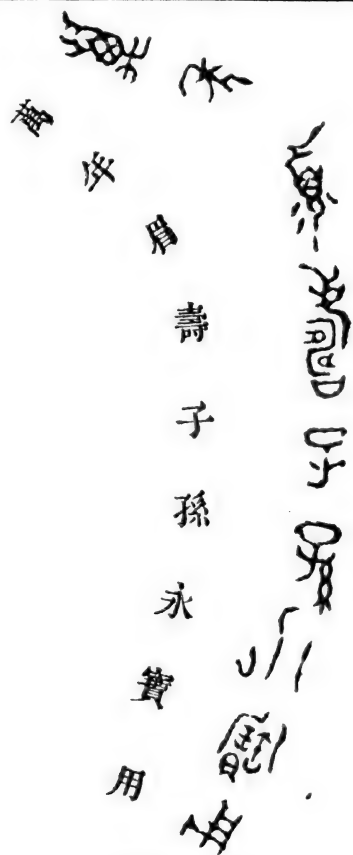 萬年眉壽子孫永寶用